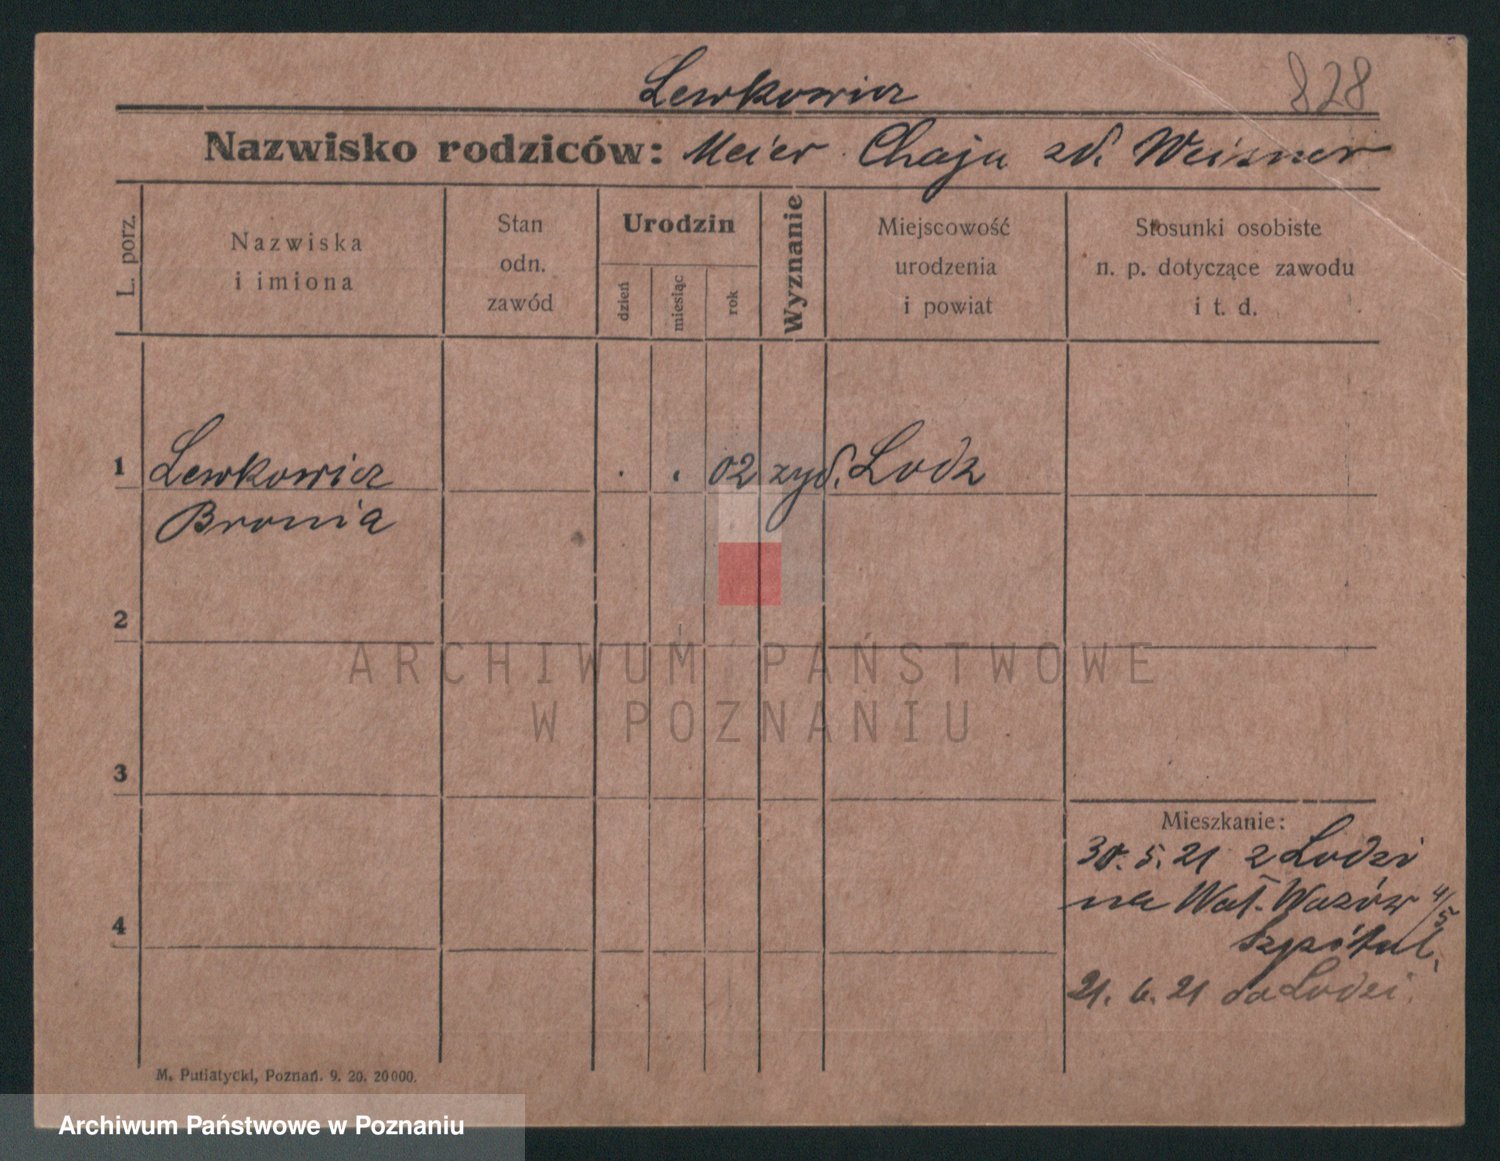 Lewkowicz
828
Nazwisko rodziców: Meier Chaja zd. Weisner
L. porz.
Nazwiska
i imiona
Stan
odn.
zawód
Urodzin
dzień
miesiąc
rok
Wyznanie
Miejscowość
urodzenia
i powiat
Stosunki osobiste
n. p. dotyczące zawodu
i t. d.
1 Lewkowicz . . 02 żyd. Lodz
Bronia
2
ARCHIWUM PAŃSTWOWE
W POZNANIU
3
Mieszkanie:
30. 5. 21 z Lodzi
na Wał. Wazów 4/5
4
Szpital.
21. 6. 21 do Lodzi.
M. Putiatycki, Poznań. 9. 20. 20000.
Archiwum Państwowe w Poznaniu